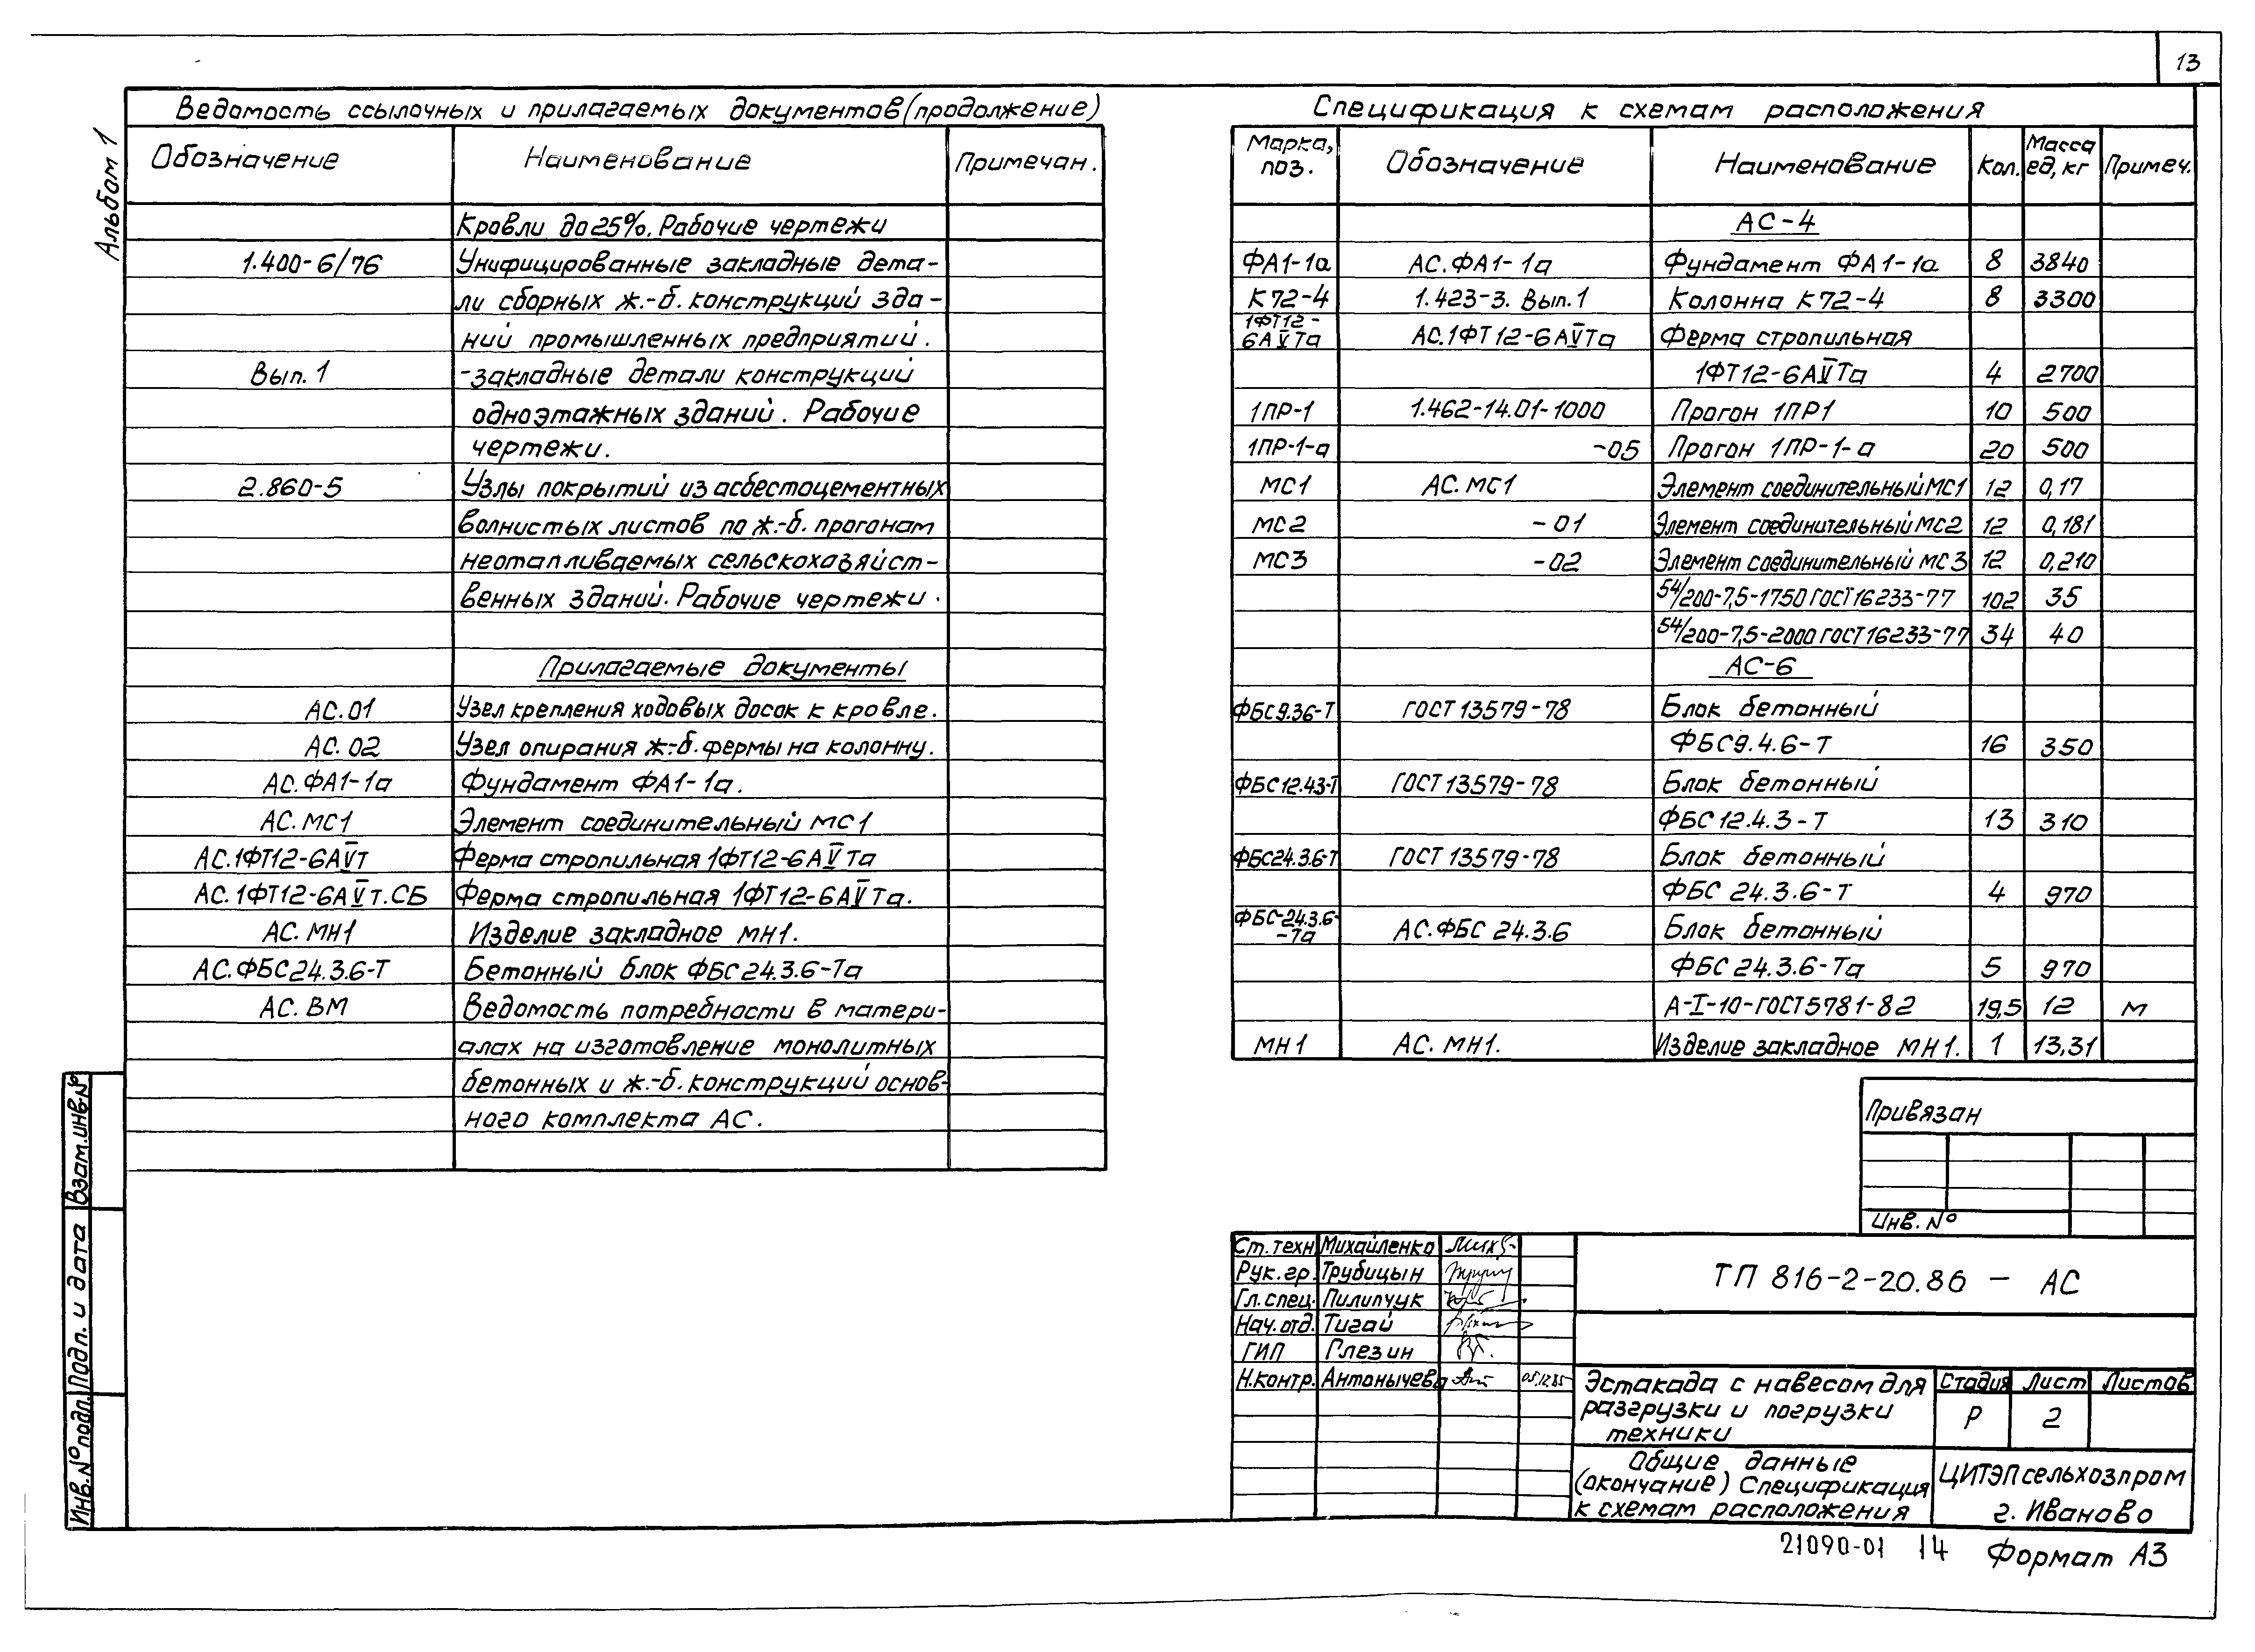 13
Альбом 1
Ведомость ссылочных и прилагаемых документов (продолжение)
Обозначение Наименование Примечан.
Кровли до 25%. Рабочие чертежи
1.400-6/76 Унифицированные закладные дета-
ли сборных ж.-б. конструкций зда-
ний промышленных предприятий.
Вып. 1 -закладные детали конструкций
одноэтажных зданий. Рабочие
чертежи.
2.860-5 Узлы покрытий из асбестоцементных
волнистых листов по ж.-б. прогонам
неотапливаемых сельскохозяйст-
венных зданий. Рабочие чертежи.
Прилагаемые документы
АС.01 Узел крепления ходовых досок к кровле.
АС.02 Узел опирания ж.-б. фермы на колонну.
АС.ФА1-1а Фундамент ФА1-1а.
АС.МС1 Элемент соединительный МС1
АС.1ФТ12-6АVт Ферма стропильная 1ФТ12-6АVТа
АС.1ФТ12-6АVт.СБ Ферма стропильная 1ФТ12-6АVТа.
АС.МН1 Изделие закладное МН1.
АС.ФБС24.3.6-Т Бетонный блок ФБС24.3.6-Та
АС.ВМ Ведомость потребности в матери-
алах на изготовление монолитных
бетонных и ж.-б. конструкций основ-
ного комплекта АС.
Спецификация к схемам расположения
Марка, поз. Обозначение Наименование Кол. Масса ед, кг Примеч.
АС-4
ФА1-1а АС.ФА1-1а Фундамент ФА1-1а 8 3840
К72-4 1.423-3. Вып.1 Колонна К72-4 8 3300
1ФТ12-
6АVТа АС.1ФТ12-6АVТа Ферма стропильная
1ФТ12-6АVТа 4 2700
1ПР-1 1.462-14.01-1000 Прогон 1ПР1 10 500
1ПР-1-а -05 Прогон 1ПР-1-а 20 500
МС1 АС.МС1 Элемент соединительный МС1 12 0,17
МС2 -01 Элемент соединительный МС2 12 0,181
МС3 -02 Элемент соединительный МС3 12 0,210
54/200-7,5-1750 ГОСТ 16233-77 102 35
54/200-7,5-2000 ГОСТ 16233-77 34 40
АС-6
ФБС9.36-Т ГОСТ 13579-78 Блок бетонный
ФБС9.4.6-Т 16 350
ФБС12.43-Т ГОСТ 13579-78 Блок бетонный
ФБС12.4.3-Т 13 310
ФБС24.3.6-Т ГОСТ 13579-78 Блок бетонный
ФБС 24.3.6-Т 4 970
ФБС-24.3.6-
-Та АС.ФБС 24.3.6 Блок бетонный
ФБС 24.3.6-Та 5 970
А-I-10-ГОСТ5781-82 19,5 12 м
МН1 АС.МН1. Изделие закладное МН1. 1 13,31
Привязан
Инв. №
Ст. техн. Михайленко
Рук. гр. Трубицын
Гл. спец. Пилипчук
Нач. отд. Тигай
ГИП Глезин
Н.контр. Антонычева 05.12.85
ТП 816-2-20.86 - АС
Эстакада с навесом для
разгрузки и погрузки
техники
Стадия Лист Листов
Р 2
Общие данные
(окончание) Спецификация
к схемам расположения
ЦИТЭПсельхозпром
г. Иваново
21090-01 14 Формат А3
Взам.инв.№
Подп. и дата
Инв.№ подл.